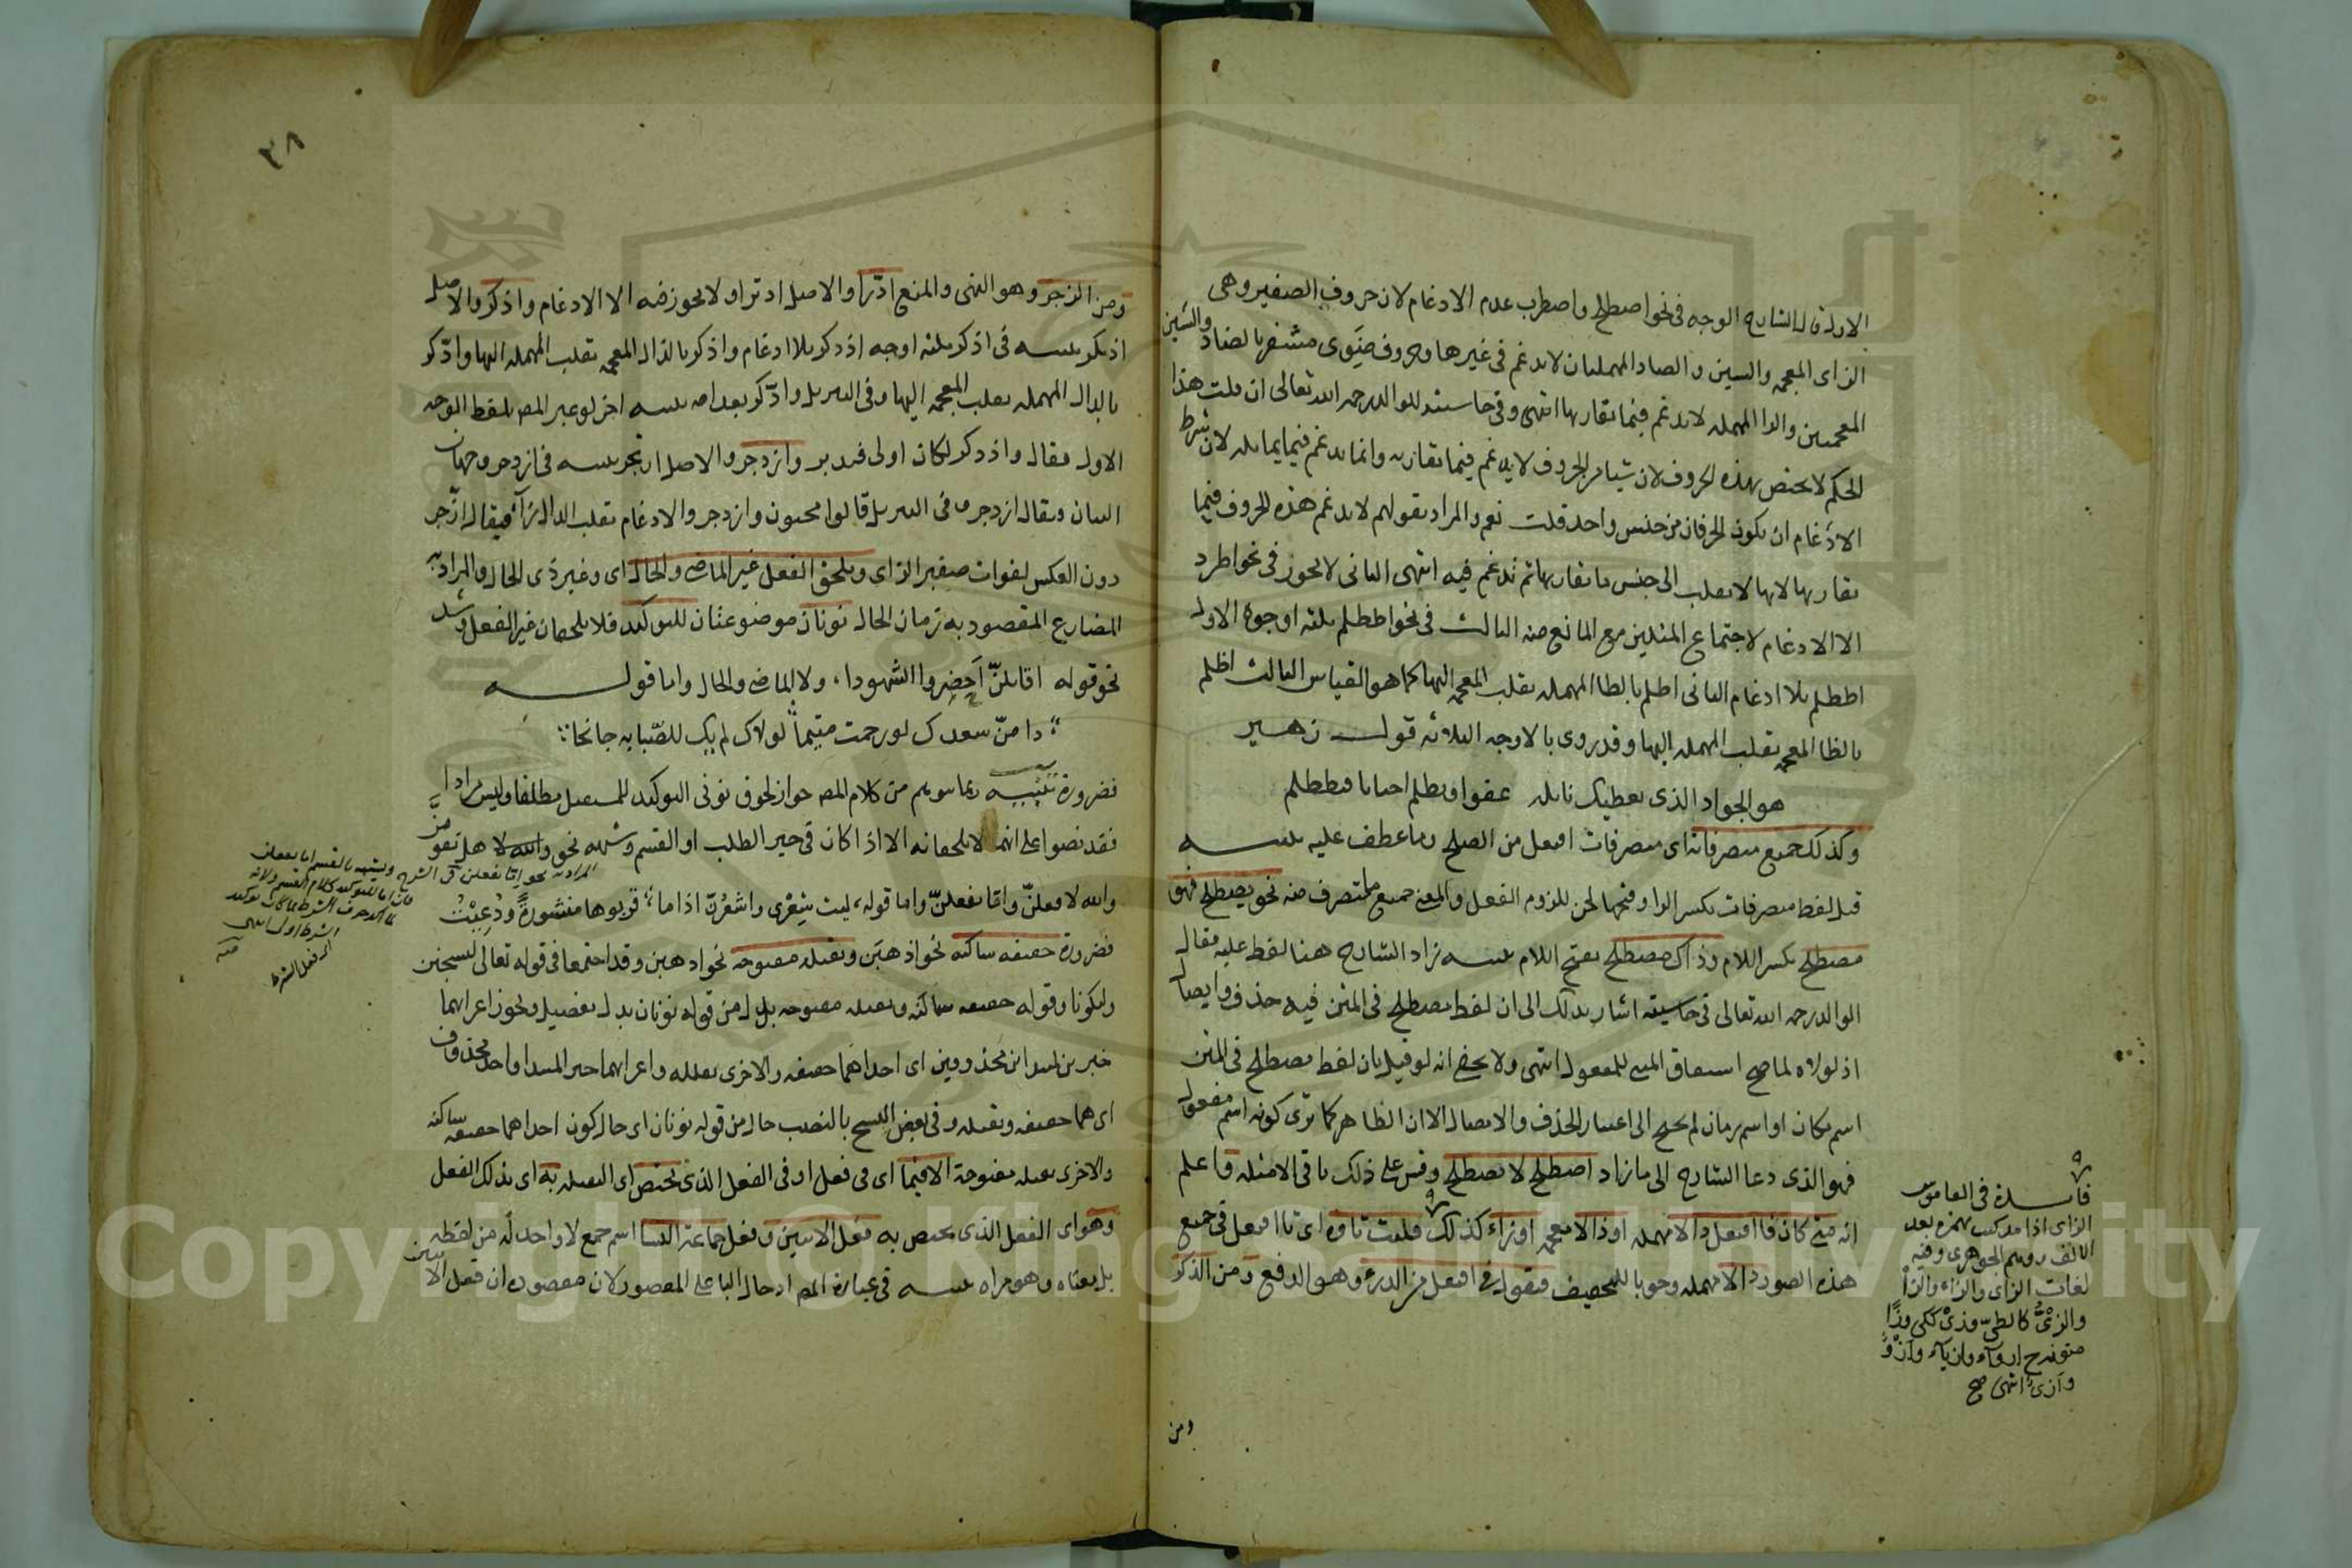 الاول قال الشارح الوجه في نحو اصطلح واصطرب عدم الادغام لان حروف الصفير وهي
الزاى المعجمه والسين والصاد المهملتان لا تدغم في غيرها وحروف ضوى مشفر بالضاد والشين
المعجمتين والرا المهمله لا تدغم فيما تقاربها انتهى وفي حاشيته للوالد رحمه الله تعالى ان قلت هذا
الحكم لا يختص بهذه الحروف لان شيا من الحروف لا يدغم فيما تقاربه وانما يدغم فيما يماثله لان شرط
الادغام ان يكون الحرفان من جنس واحد قلت نعم والمراد بقولهم لا تدغم هذه الحروف فيما
تقاربها انها لا تقلب الى جنس ما تقاربها ثم تدغم فيه انتهى الثاني لا يجوز في نحو اطرد
الا الادغام لاجتماع المثلين مع المانع منه الثالث في نحو اظطلم ثلثه اوجه الاول
اظطلم بلا ادغام الثاني اطلم بالطا المهمله بقلب المعجمه اليها كما هو القياس الثالث اظلم
بالظا المعجمه بقلب المهمله اليها وقد روى بالاوجه الثلاثه قول زهير
هو الجواد الذى يعطيك نايله عفوا ويظلم احيانا فيظطلم
وكذلك جميع متصرفاته اى متصرفات افتعل من الصلح وما عطف عليه تنبيه
قيل لفظ متصرفات بكسر الرا وفتحها لحن للزوم الفعل والمعنى جميع ما يتصرف منه نحو يصطلح فهو
مصطلح بكسر اللام وذاك مصطلح بفتح اللام تنبيه زاد الشارح هنا لفظ عليه فقال
الوالد رحمه الله تعالى في حاشيته اشار بذلك الى ان لفظ مصطلح في المتن فيه حذف وايصال
اذ لولاه لما صح اشتقاق المبنى للمفعول انتهى ولا يخفى انه لو قيل بان لفظ مصطلح في المتن
اسم مكان او اسم زمان لم يحتج الى اعتبار الحذف والايصال الا ان الظاهر كما ترى كونه اسم مفعول
فهو الذى دعا الشارح الى ما زاد اصطلح لا تصطلح وقس على ذلك باقي الامثله واعلم
انه متى كان فا افتعل دالا مهمله او ذالا معجمه او زاء كذلك قلبت تاوه اى تا افتعل في جميع
هذه الصور دالا مهمله وجوبا للتخفيف فتقول في افتعل من الدرء وهو الدفع ومن الذكر
ومن
فائدة في القاموس
الزاى اذا مد كتب بهمزه بعد
الالف ووهم الجوهرى وفيه
لغات الزاى والزاء والزا
والزى كالطى وزى ككى وزا
منونة ج ازواء وازياء وازو
وازى انتهى صح
٣٨
ومن الزجر وهو النهى والمنع ادّرا والاصل ادترا ولا يجوز فيه الا الادغام واذكر والاصل
اذتكر تنبيه في اذكر ثلثه اوجه اذدكر بلا ادغام واذكر بالذال المعجمه بقلب المهمله اليها وادّكر
بالدال المهمله بقلب المعجمه اليها وفي التنزيل وادّكر بعد امه تنبيه اخر لو عبر المص بلفظ الوجه
الاول فقال واذدكر لكان اولى فتدبر وازدجر والاصل ازتجر تنبيه في ازدجر وجهان
البيان ويقال ازدجر وفي التنزيل قالوا مجنون وازدجر والادغام بقلب الدال زآء فيقال ازّجر
دون العكس لفوات صفير الزاى وتلحق الفعل غير الماضى والحال اى وغير ذى الحال والمراد به
المضارع المقصود به زمان الحال نونان موضوعتان للتوكيد فلا تلحقان غير الفعل وشذ
نحو قوله اقايلنّ احضروا الشهودا، ولا الماضى والحال واما قوله
دامنّ سعدك لو رحمت متيما لولاك لم يك للصبابه جانحا
فضرورة تنبيه ربما يتوهم من كلام المص جواز لحوق نونى التوكيد للمستقبل مطلقا وليس مرادا
فقد نصوا على انهما لا تلحقانه الا اذا كان في حيز الطلب او القسم وشبهه نحو والله لا هل تقومنّ
والله لافعلنّ واما تفعلنّ واما قوله، ليت شعرى واشعرنّ اذا ما، قربوها منشورة ودعيت
فضرورة خفيفه ساكنه نحو اذهبن وثقيله مفتوحه نحو اذهبن وقد اجتمعا في قوله تعالى ليسجنن
وليكونا وقوله خفيفه ساكنه وثقيله مفتوحه بدل من قوله نونان بدل تفصيل ويجوز اعرابهما
خبرين لمبتداين محذوفين اى احداهما خفيفه والاخرى ثقيله واعرابهما خبر المبتدا واحد محذوف
اى هما خفيفه وثقيله وفي بعض النسخ بالنصب حال من قوله نونان اى حال كون احداهما خفيفه ساكنه
والاخرى ثقيله مفتوحة الا فيما اى في فعل او في الفعل الذى تختص اى الثقيله به اى بذلك الفعل
وهو اى الفعل الذى يختص به فعل الاثنين وفعل جماعة النسا اسم جمع لا واحد له من لفظه
بل بمعناه وهو مراه تنبيه في عبارة المص ادخال البا على المقصور لان مقصوده ان فعل الاثنين
المراد به نحو اما تفعلن قى الشرح ويشبه بالقسم اما تفعلن